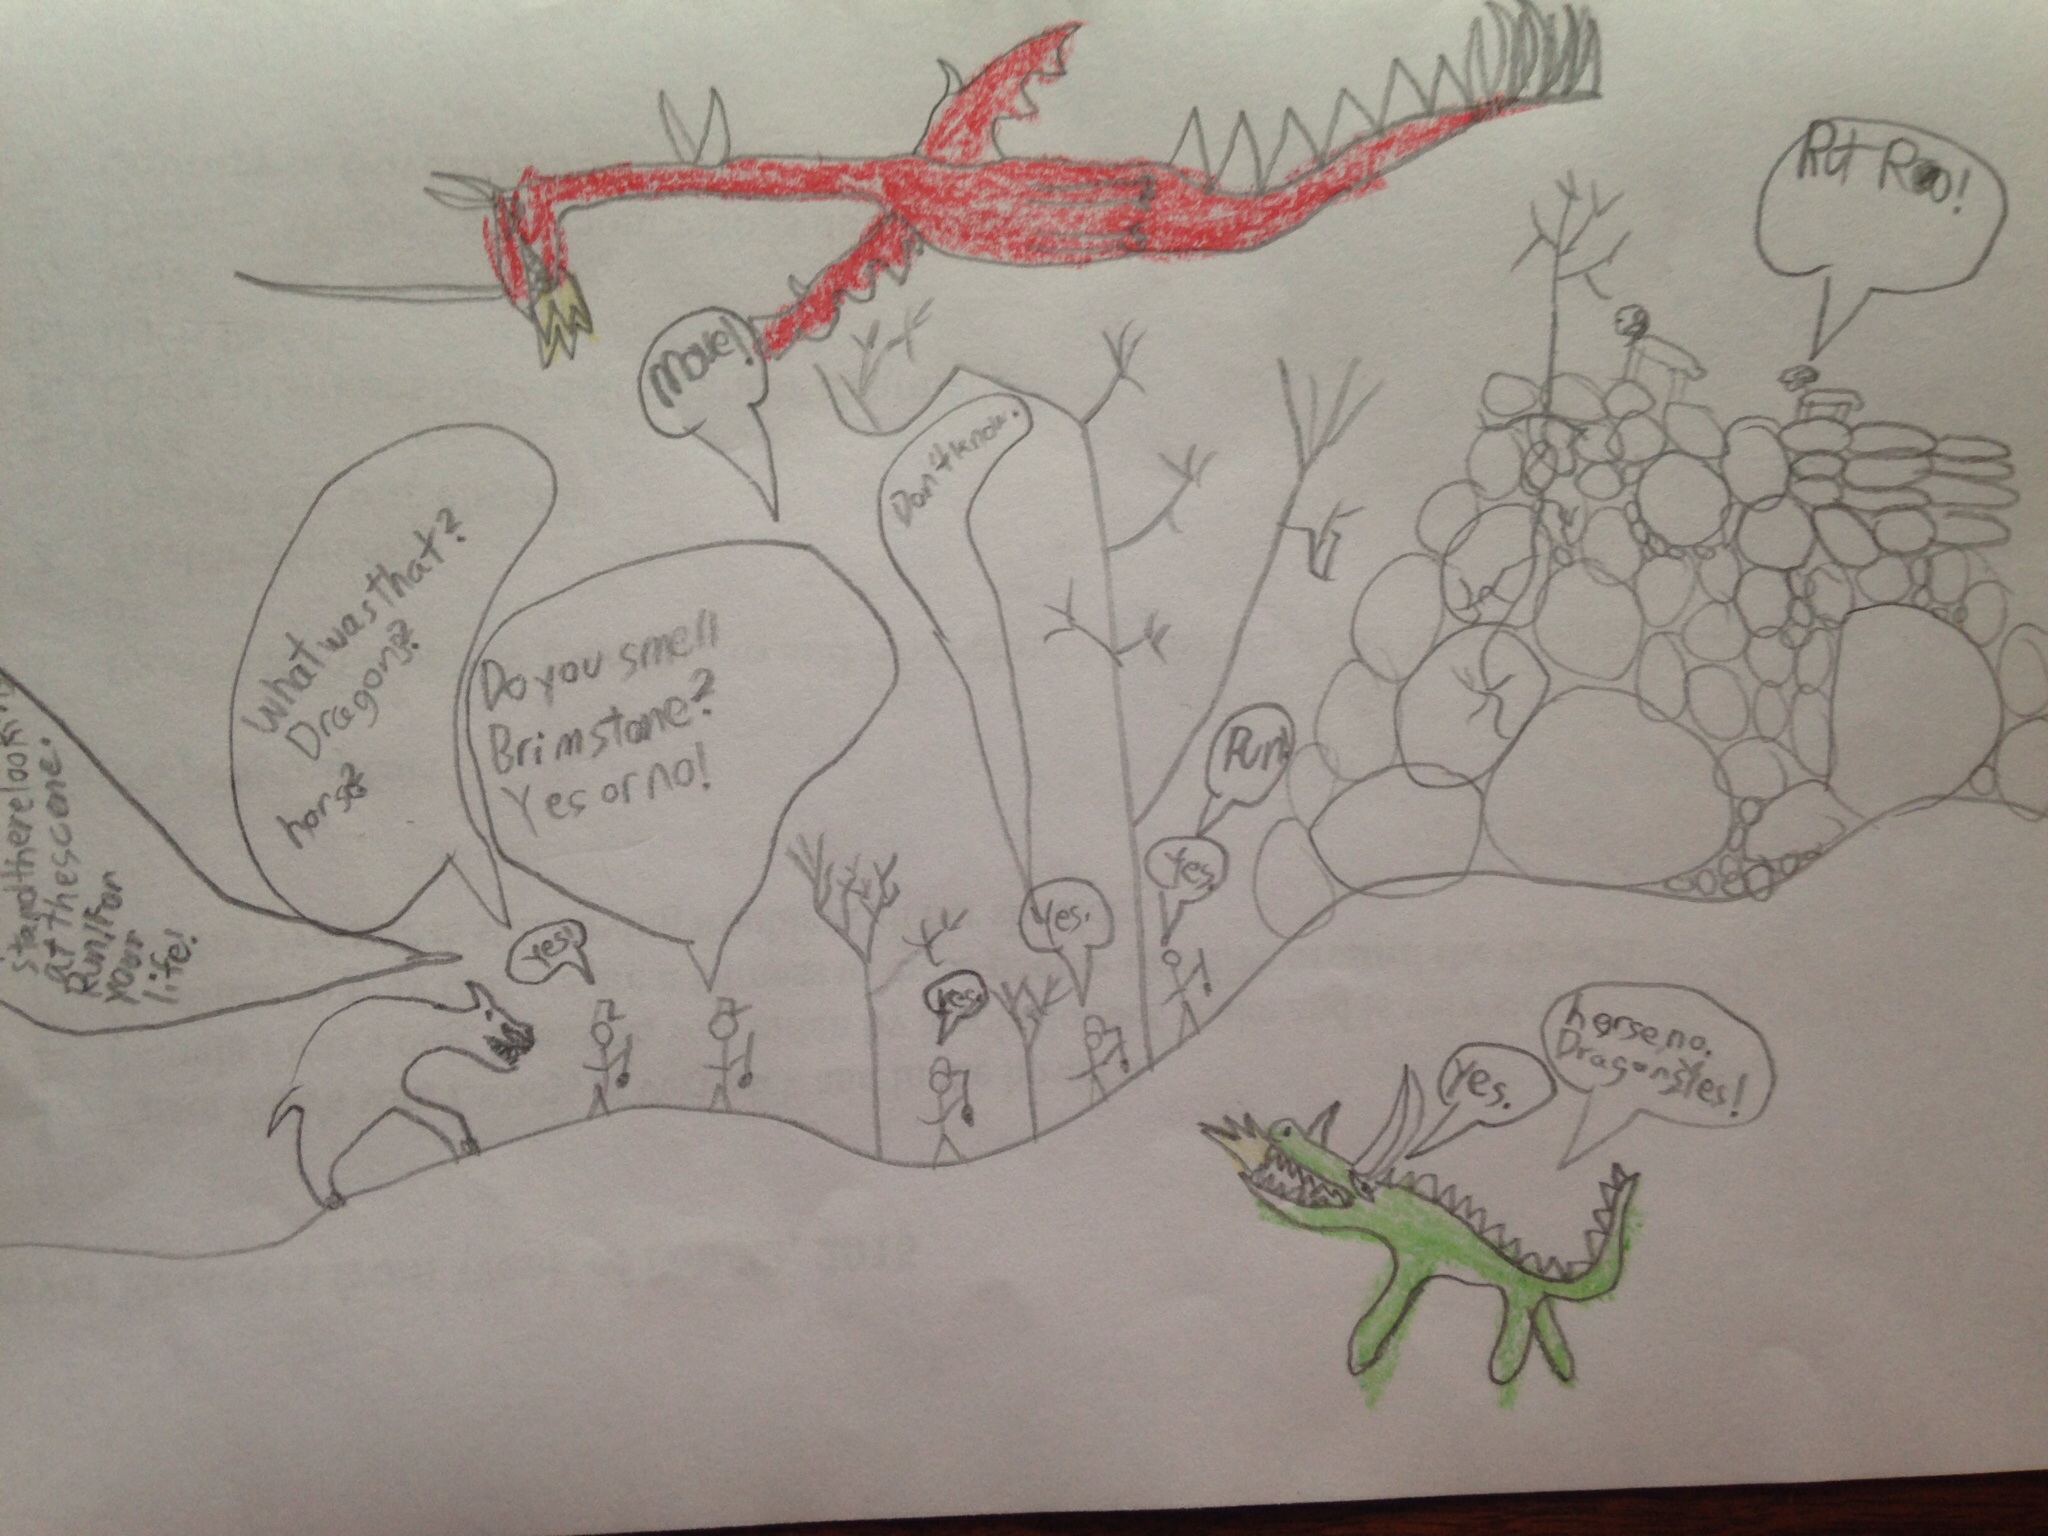 Rut Roo!
Move!
Don't know.
What was that?
Dragons?
horse?
Do you smell
Brimstone?
Yes or no!
stand there look
at the scene.
Run! For
your
life!
Run!
Yes.
Yes.
Yes!
Yes.
horse, no.
Dragons, Yes!
Yes.